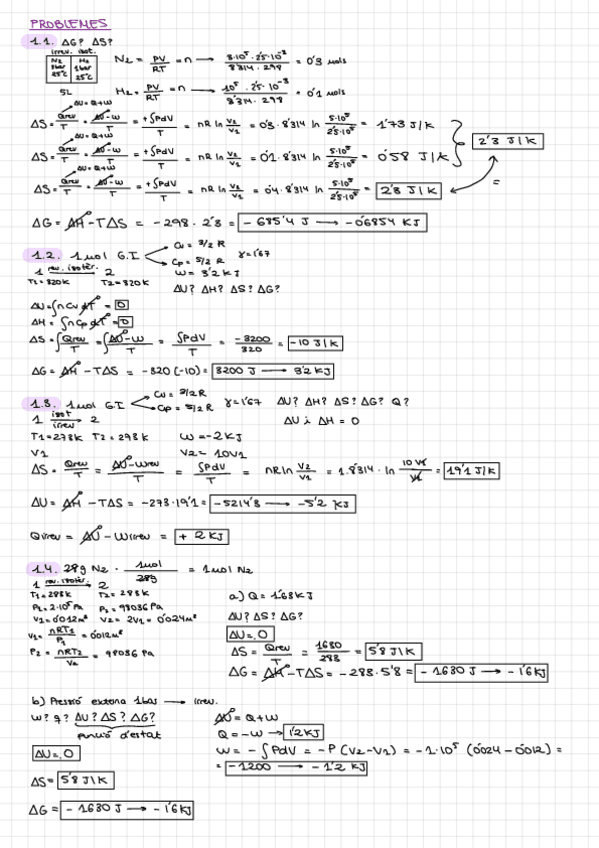 PROBLEMES
1.1. ΔG? ΔS?
irrev. isot.
N2 3bar 25ºC | H2 1bar 25ºC
5L
N2 = PV/RT = n → 3·10⁵·2'5·10⁻³/8'314·298 = 0'3 mols
H2 = PV/RT = n → 10⁵·2'5·10⁻³/8'314·298 = 0'1 mols
ΔU=Q+W
ΔS = Qrev/T = ΔU-W/T = +∫PdV/T = nR ln V2/V1 = 0'3·8'314 ln 5·10⁵/2'5·10⁵ = 1'73 J/K
ΔU=Q+W
ΔS = Qrev/T = ΔU-W/T = +∫PdV/T = nR ln V2/V1 = 0'1·8'314 ln 5·10⁵/2'5·10⁵ = 0'58 J/K
2'3 J/K
ΔU=Q+W
ΔS = Qrev/T = ΔU-W/T = +∫PdV/T = nR ln V2/V1 = 0'4·8'314 ln 5·10⁵/2'5·10⁵ = 2'3 J/K
=
ΔG = ΔH-TΔS = -298·2'3 = -685'4 J → -0'6854 KJ
1.2. 1 mol G.I
Cv = 3/2 R
Cp = 5/2 R
γ=1'67
1 rev. isotèr. 2
W = 3'2 KJ
T1=320K T2=320K
ΔU? ΔH? ΔS? ΔG?
ΔU=∫nCv dT = 0
ΔH = ∫nCp dT = 0
ΔS = ∫Qrev/T = ∫ΔU-W/T = ∫PdV/T = -3200/320 = -10 J/K
ΔG = ΔH - TΔS = -320(-10) = 3200 J → 3'2 KJ
1.3. 1 mol G.I
Cv = 3/2 R
Cp = 5/2 R
γ=1'67
ΔU? ΔH? ΔS? ΔG? Q?
1 isot irrev 2
ΔU i ΔH = 0
T1=273K T2=273K W=-2KJ
V1 V2=10V1
ΔS = Qrev/T = ΔU-Wrev/T = ∫PdV/T = nR ln V2/V1 = 1·8'314·ln 10V1/V1 = 19'1 J/K
ΔU = ΔH - TΔS = -273·19'1 = -5214'3 → -5'2 KJ
Qirrev = ΔU - Wirrev = +2 KJ
1.4. 28g N2 · 1mol/28g = 1 mol N2
1 rev. isotèr. 2
T1=283K T2=283K
a) Q = 1'63KJ
P1=2·10⁵ Pa P2=98036 Pa
V1=0'012m³ V2=2V1=0'024m³
ΔU? ΔS? ΔG?
V1 = nRT1/P1 = 0'012m³
ΔU=0
P2 = nRT2/V2 = 98036 Pa
ΔS = Qrev/T = 1630/283 = 5'8 J/K
ΔG = ΔH-TΔS = -283·5'8 = -1630 J → -1'6KJ
b) Pressió externa 1bar → irrev.
W? q? ΔU? ΔS? ΔG?
funció d'estat
ΔU = Q+W
Q=-W → 1'2KJ
ΔU=0
W = -∫PdV = -P(V2-V1) = -1·10⁵ (0'024-0'012) =
= -1200 → -1'2 KJ
ΔS = 5'8 J/K
ΔG = -1630 J → -1'6KJ